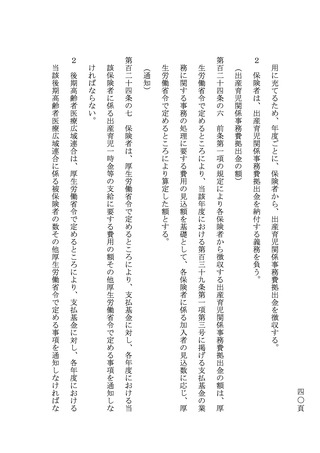 用に充てるため、年度ごとに、保険者から、出産育児関係事務費拠出金を徴収する。
２　保険者は、出産育児関係事務費拠出金を納付する義務を負う。
（出産育児関係事務費拠出金の額）
第百二十四条の六　前条第一項の規定により各保険者から徴収する出産育児関係事務費拠出金の額は、厚
生労働省令で定めるところにより、当該年度における第百三十九条第一項第三号に掲げる支払基金の業
務に関する事務の処理に要する費用の見込額を基礎として、各保険者に係る加入者の見込数に応じ、厚
生労働省令で定めるところにより算定した額とする。
（通知）
第百二十四条の七　保険者は、厚生労働省令で定めるところにより、支払基金に対し、各年度における当
該保険者に係る出産育児一時金等の支給に要する費用の額その他厚生労働省令で定める事項を通知しな
ければならない。
２　後期高齢者医療広域連合は、厚生労働省令で定めるところにより、支払基金に対し、各年度における
当該後期高齢者医療広域連合に係る被保険者の数その他厚生労働省令で定める事項を通知しなければな
四〇頁